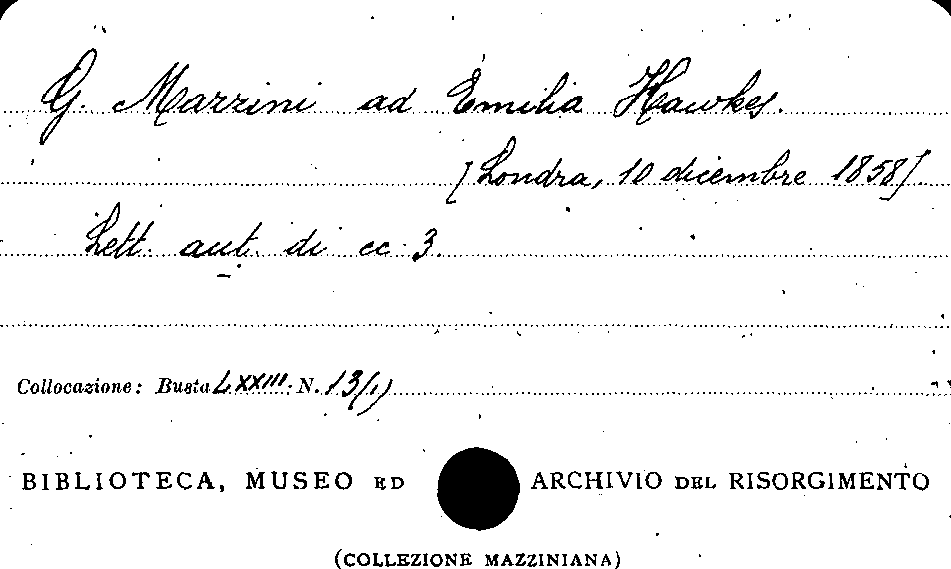 G. Mazzini ad Emilia Hawkes.
[Londra, 10 dicembre 1858].
Lett. aut. di cc. 3.
Collocazione: Busta LXXIII. N. 13(1)
BIBLIOTECA, MUSEO ED ARCHIVIO DEL RISORGIMENTO
(COLLEZIONE MAZZINIANA)